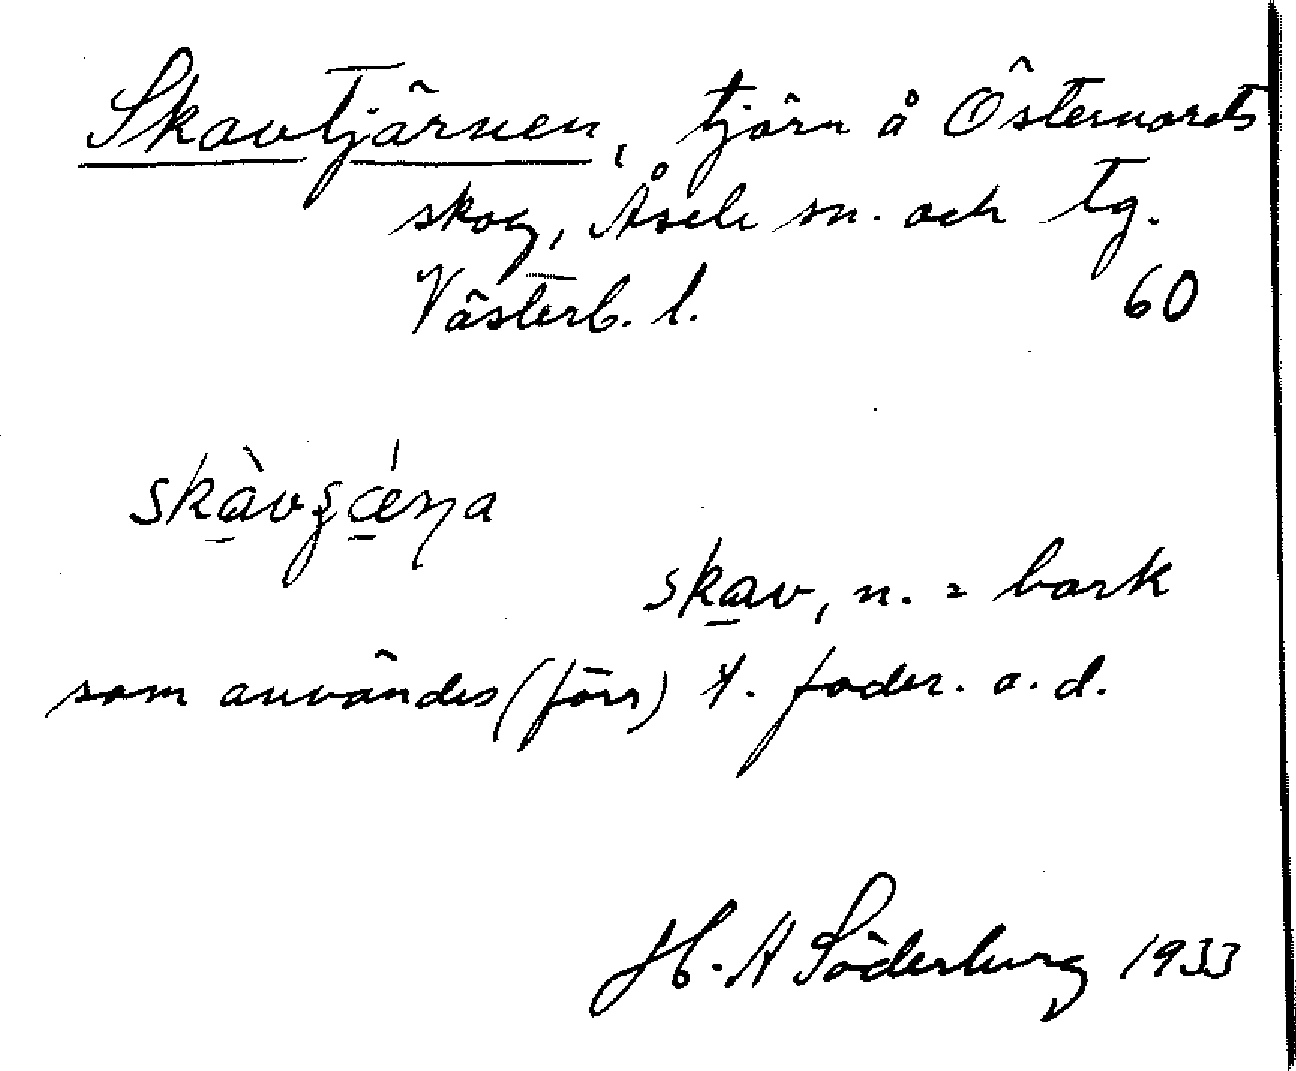 Skavtjärnen, tjärn å Östernorets
skog, Åsele sn. och tg.
Västerb. l. 60
skàvʒǽɳa
skav, n. = bark
som användes (förr) t. foder. o. d.
H. A Söderberg 1933